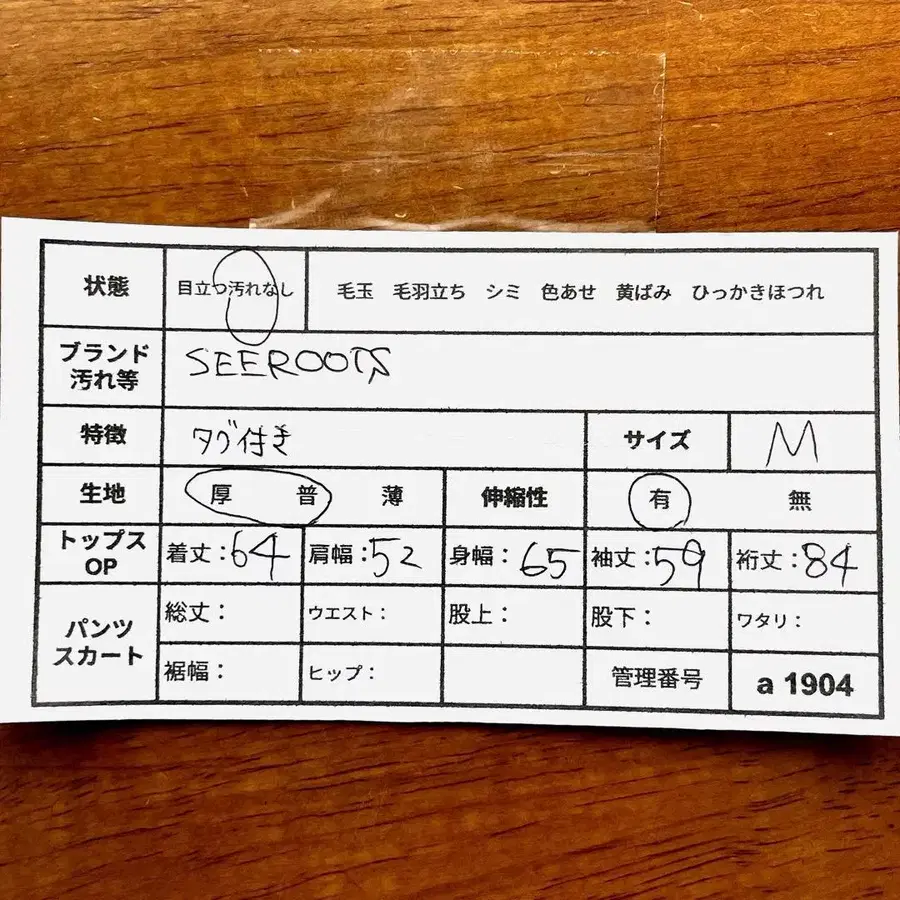 状態 目立つ汚れなし 毛玉 毛羽立ち シミ 色あせ 黄ばみ ひっかきほつれ
ブランド
汚れ等 SEEROOTS
特徴 タグ付き サイズ M
生地 厚 普 薄 伸縮性 有 無
トップス
OP 着丈:64 肩幅:52 身幅:65 袖丈:59 裄丈:84
パンツ
スカート
総丈: ウエスト: 股上: 股下: ワタリ:
裾幅: ヒップ: 管理番号 a 1904